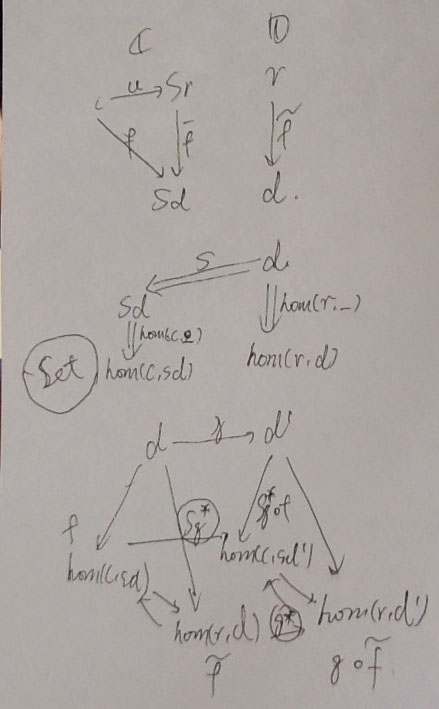 ℂ 𝔻
c u Sr r
f f̄ f̃
Sd d.
S d
Sd hom(r,_)
hom(c,_)
Set hom(c,sd) hom(r,d)
d g d'
f Sg* g*of
hom(c,sd) hom(c,sd')
hom(r,d) g* hom(r,d')
f̃ g∘f̃.